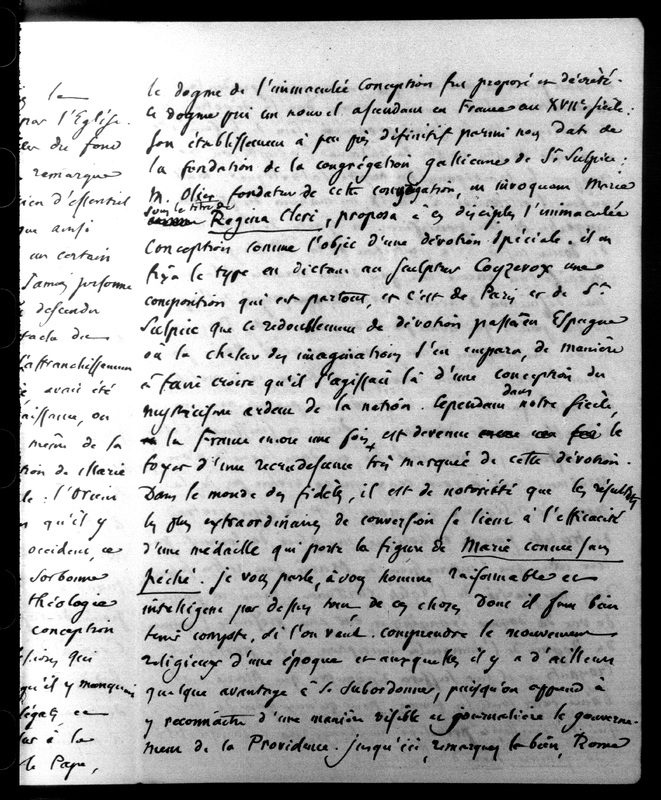 le
par l'Eglise.
du fond
remarque
d'essentiel
ainsi
un certain
Jamais personne
descendu
l'affranchissement
avait été
naissance, ou
même de la
de Marie
: l'Orient
qu'il y
occident, ce
Sorbonne
théologie
conception
qui
qu'il y manquait
légat, et
à la
le Pape,
le dogme de l'immaculée Conception fut proposé et décrété.
ce dogme prit un nouvel ascendant en France au XVIIe siècle :
son établissement à peu près définitif parmi nous date de
la fondation de la congrégation gallicane de St Sulpice :
M. Olier fondateur de cette congrégation, en invoquant Marie
sous le titre de
Regina Cleri, proposa à ses disciples l'immaculée
Conception comme l'objet d'une dévotion spéciale. il en
fixa le type en dictant au sculpteur Coyzevox une
composition qui est partout, et c'est de Paris et de St
Sulpice que ce redoublement de dévotion passa en Espagne
où la chaleur des imaginations s'en empara, de manière
à faire croire qu'il s'agissait là d'une conception du
mysticisme ardent de la nation. Cependant dans notre siècle,
la France encore une fois est devenue le
foyer d'une recrudescence très marquée de cette dévotion.
Dans le monde des fidèles, il est de notoriété que les résultats
les plus extraordinaires de conversion se lient à l'efficacité
d'une médaille qui porte la figure de Marie conçue sans
péché. je vous parle, à vous homme raisonnable et
intelligent par dessus tout de ces choses dont il faut bien
tenir compte, si l'on veut comprendre le mouvement
religieux d'une époque et auxquelles il y a d'ailleurs
quelque avantage à se subordonner, puisqu'on apprend à
y reconnaître d'une manière visible et journalière le gouverne-
ment de la Providence. jusqu'ici, remarquez le bien, Rome